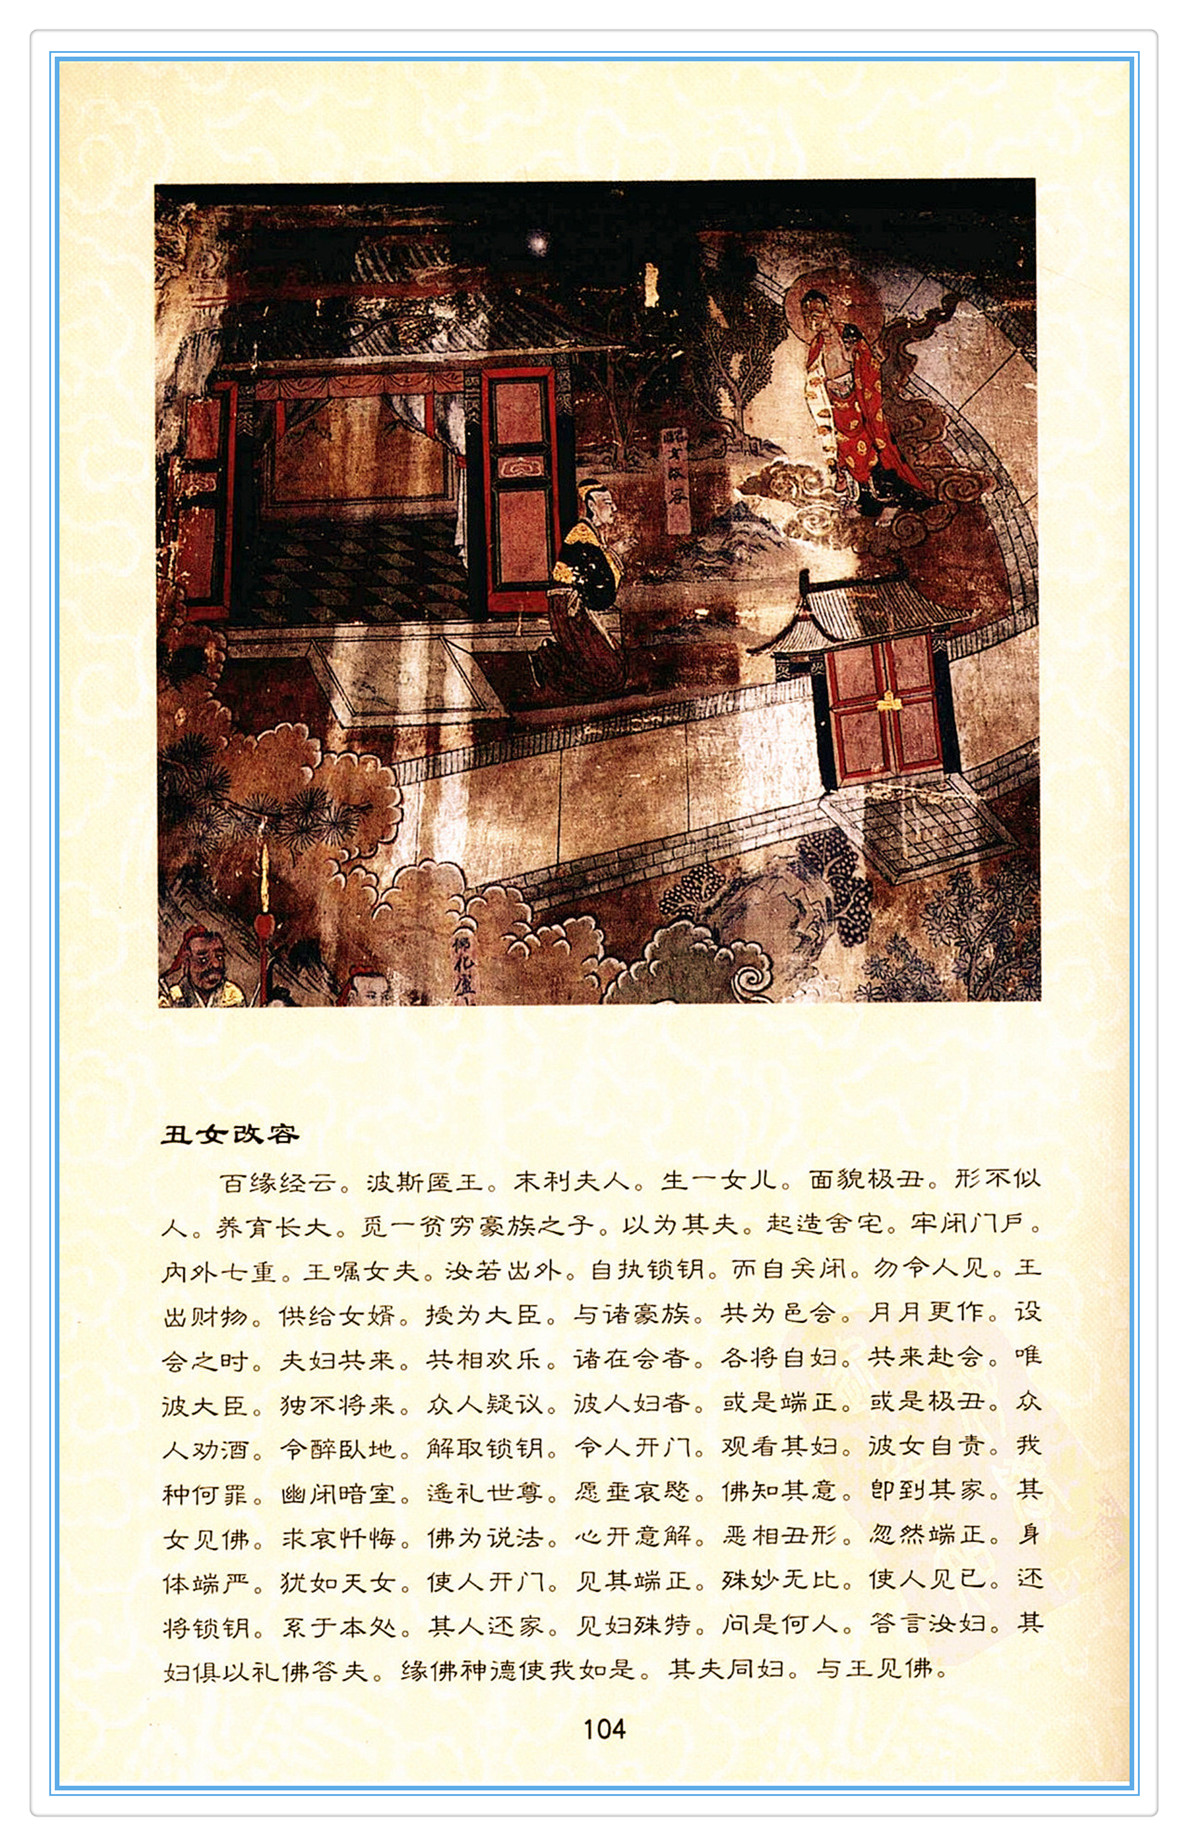 女改容
佛化卢
丑女改容
百缘经云。波斯匿王。末利夫人。生一女儿。面貌极丑。形不似
人。养育长大。觅一贫穷豪族之子。以为其夫。起造舍宅。牢闭门户。
内外七重。王嘱女夫。汝若出外。自执锁钥。而自关闭。勿令人见。王
出财物。供给女婿。授为大臣。与诸豪族。共为邑会。月月更作。设
会之时。夫妇共来。共相欢乐。诸在会者。各将自妇。共来赴会。唯
波大臣。独不将来。众人疑议。波人妇者。或是端正。或是极丑。众
人劝酒。令醉卧地。解取锁钥。令人开门。观看其妇。波女自责。我
种何罪。幽闭暗室。遥礼世尊。愿垂哀愍。佛知其意。即到其家。其
女见佛。求哀忏悔。佛为说法。心开意解。恶相丑形。忽然端正。身
体端严。犹如天女。使人开门。见其端正。殊妙无比。使人见已。还
将锁钥。系于本处。其人还家。见妇殊特。问是何人。答言汝妇。其
妇俱以礼佛答夫。缘佛神德使我如是。其夫同妇。与王见佛。
104